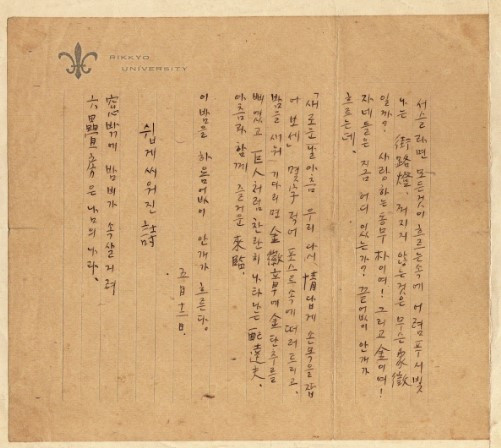 RIKKYO
UNIVERSITY
서슬라면 모든것이 흐르는속에 어렴푸시빛
나는 街路燈. 꺼지지 않는것은 무슨象徵
일까? 사랑하는동무 朴이여! 그리고 金이여!
자네들은 지금 어디 있는가? 끝없이 안개가
흐르는데.
「새로운날아츰 우리 다시 情답게 손목을잡
어 보세」 몇字 적어 포스트속에 떠러트리고.
밤을 세워 기다리면 金徽章에 金단추를
삐였고 巨人처럼 찬란히 나타나는 配達夫.
아츰과 함께 즐거운 來臨.
이밤을 하욤없이 안개가 흐른다.
五月十二日.
쉽게 씨워진 詩
窓밖에 밤비가 속살거려
六疊房은 남의 나라.